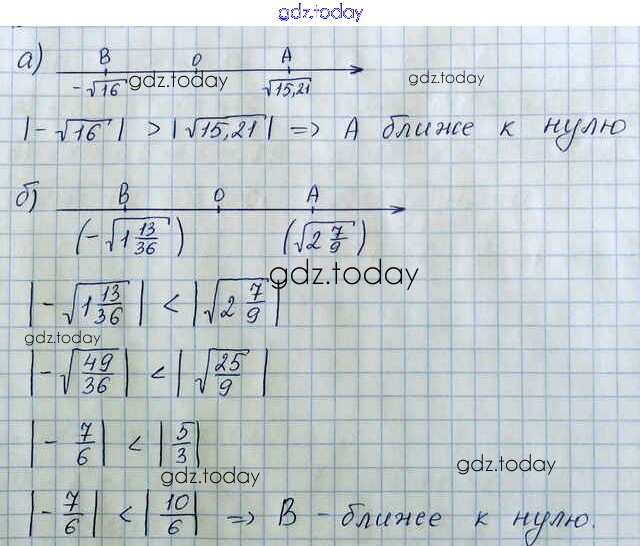 gdz.today
а) B O A
-√16 gdz.today √15,21 gdz.today
|-√16| > |√15,21| => A ближе к нулю
б) B O A
(-√1 13/36) (√2 7/9)
gdz.today
|-√1 13/36| < |√2 7/9|
gdz.today
|-√49/36| < |√25/9|
|-7/6| < |5/3|
gdz.today gdz.today
|-7/6| < |10/6| => B - ближе к нулю.